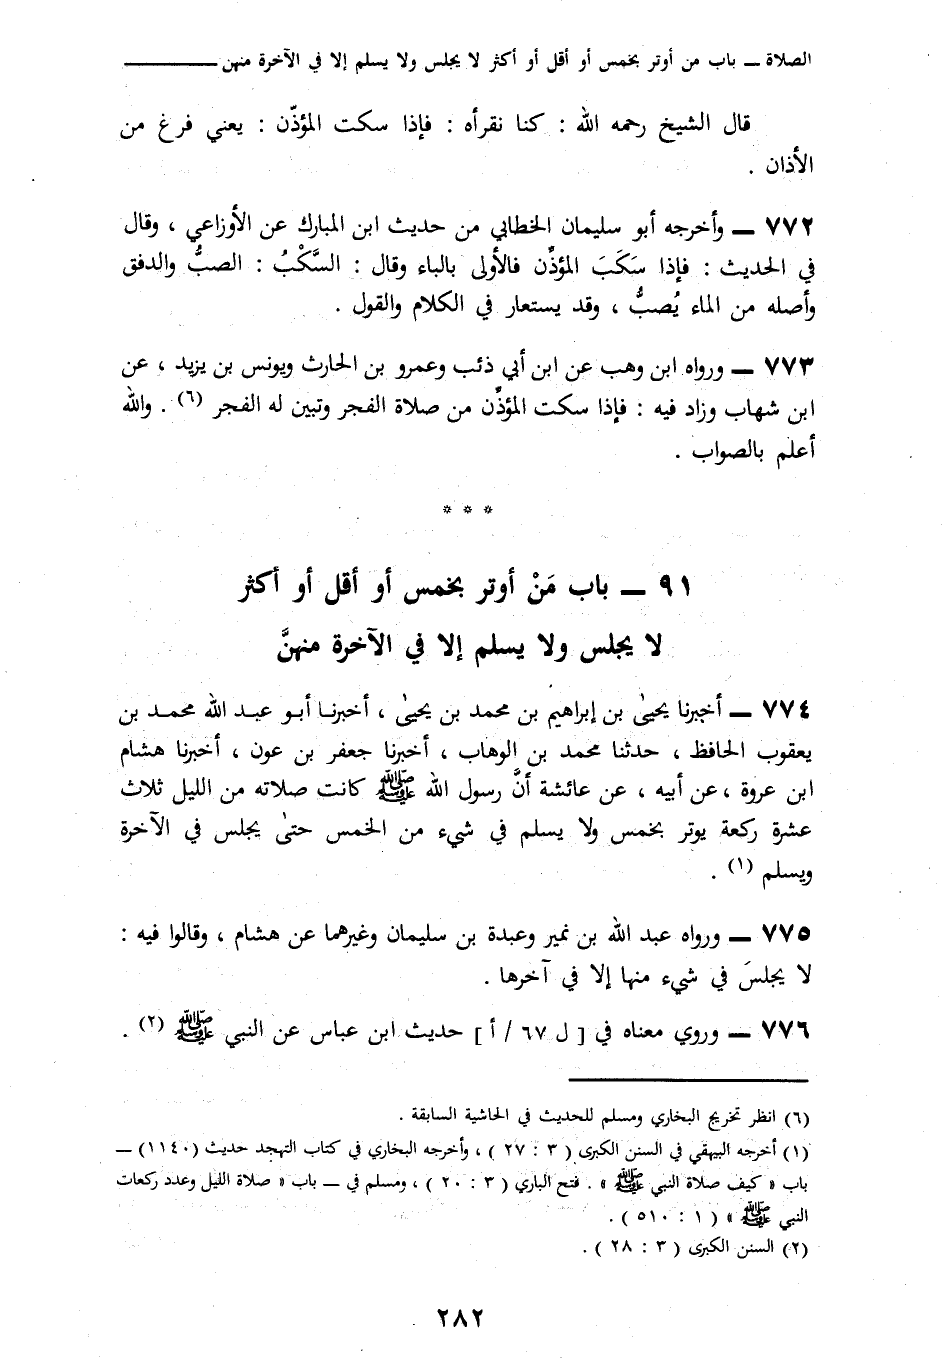 الصلاة ــ باب من أوتر بخمس أو أقل أو أكثر لا يجلس ولا يسلم إلا في الآخرة منهن ــــــــ
قال الشيخ رحمه الله : كنا نقرأه : فإذا سكت المؤذّن : يعني فرغ من
الأذان .
٧٧٢ ــ وأخرجه أبو سليمان الخطابي من حديث ابن المبارك عن الأوزاعي ، وقال
في الحديث : فإذا سَكَبَ المؤذّن فالأولى بالباء وقال : السَّكْبُ : الصبُّ والدفق
وأصله من الماء يُصبُّ ، وقد يستعار في الكلام والقول .
٧٧٣ ــ ورواه ابن وهب عن ابن أبي ذئب وعمرو بن الحارث ويونس بن يزيد ، عن
ابن شهاب وزاد فيه : فإذا سكت المؤذّن من صلاة الفجر وتبين له الفجر (٦) . والله
أعلم بالصواب .
* * *
٩١ ــ باب مَنْ أوتر بخمس أو أقل أو أكثر
لا يجلس ولا يسلم إلا في الآخرة منهنَّ
٧٧٤ ــ أخبرنا يحيىٰ بن إبراهيم بن محمد بن يحيىٰ ، أخبرنا أبو عبد الله محمد بن
يعقوب الحافظ ، حدثنا محمد بن الوهاب ، أخبرنا جعفر بن عون ، أخبرنا هشام
ابن عروة ، عن أبيه ، عن عائشة أنَّ رسول الله ﷺ كانت صلاته من الليل ثلاث
عشرة ركعة يوتر بخمس ولا يسلم في شيء من الخمس حتىٰ يجلس في الآخرة
ويسلم (١) .
٧٧٥ ــ ورواه عبد الله بن نمير وعبدة بن سليمان وغيرهما عن هشام ، وقالوا فيه :
لا يجلسَ في شيء منها إلا في آخرها .
٧٧٦ ــ وروي معناه في [ ل ٦٧ / أ ] حديث ابن عباس عن النبي ﷺ (٢) .
(٦) انظر تخريج البخاري ومسلم للحديث في الحاشية السابقة .
(١) أخرجه البيهقي في السنن الكبرى ( ٣ : ٢٧ ) ، وأخرجه البخاري في كتاب التهجد حديث (١١٤٠) ــ
باب « كيف صلاة النبي ﷺ » . فتح الباري ( ٣ : ٢٠ ) ، ومسلم في ــ باب « صلاة الليل وعدد ركعات
النبي ﷺ » ( ١ : ٥١٠ ) .
(٢) السنن الكبرى ( ٣ : ٢٨ ) .
٢٨٢